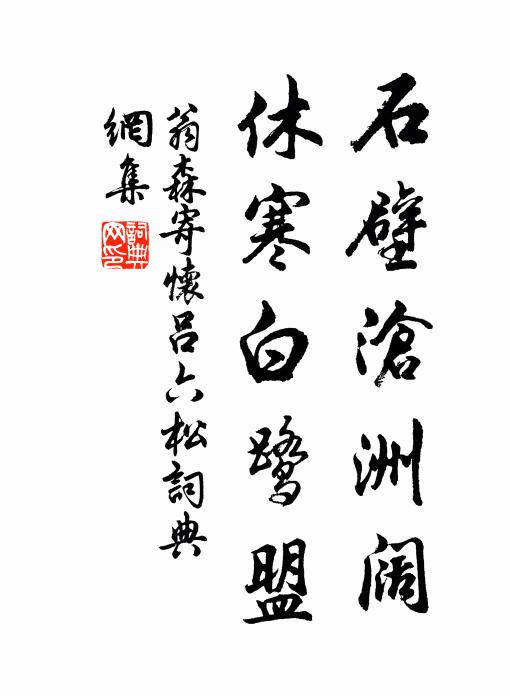 石壁滄洲阔
休寒白鹭盟
翁森寄懷呂六松詞典
網集
詞典網印